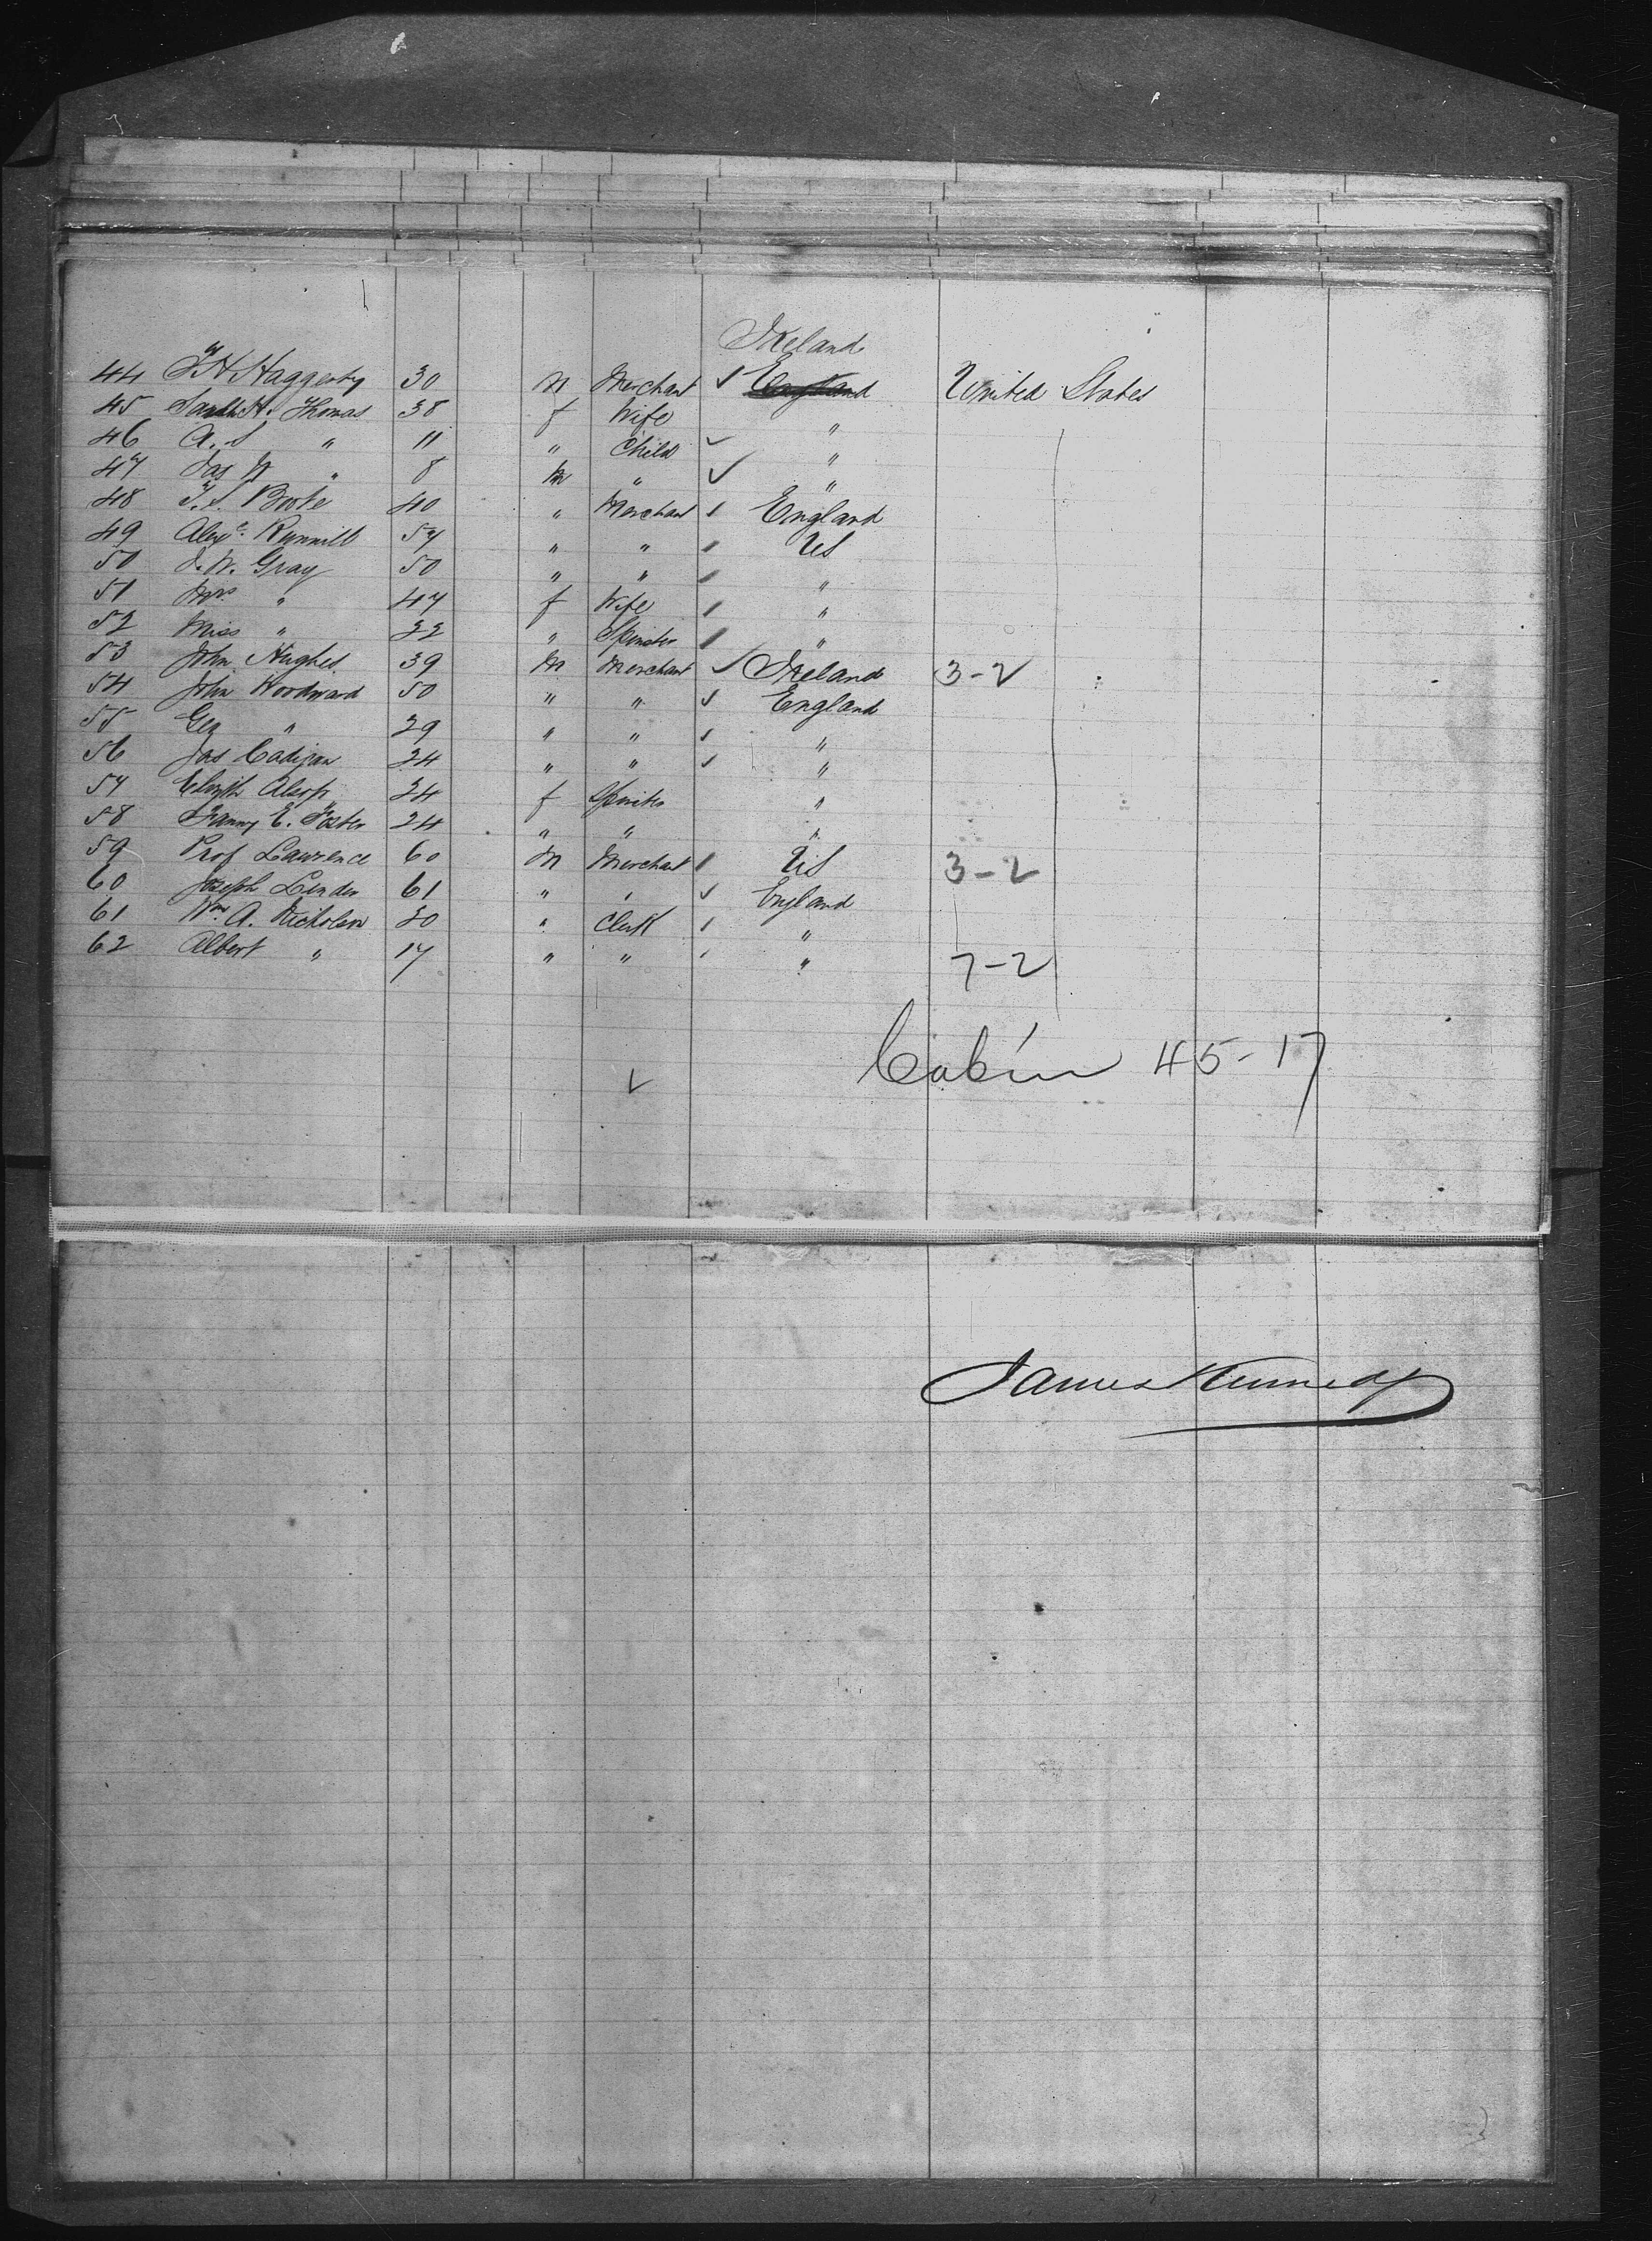 Ireland
44 T H Haggerty 30 M Merchant ✓ England United States
45 Sarah H. Thomas 38 f Wife "
46 A. S " 11 " Child ✓ "
47 Jas W " 8 M " ✓ "
48 T. S. Boote 40 " Merchant England
49 Alexr 54 " " US
50 J. W. Gray 50 " " "
51 Mrs " 47 f Wife "
52 Miss " 22 " Spinster "
53 John Hughes 39 M Merchant ✓ Ireland 3-2
54 John Woodward 50 " " ✓ England
55 Geo " 29 " " ✓ "
56 Jas Cadigan 24 " " ✓ "
57 Elizth Alsop 24 f Spinster "
58 Fanny E. Foster 24 " " "
59 Prof Lawrence 60 M Merchant US 3-2
60 Joseph Linder 61 " " ✓ England
61 Wm A. Nicholson 20 " Clerk "
62 Albert " 17 " " " 7-2
Cabin 45-17
✓
James Kennedy